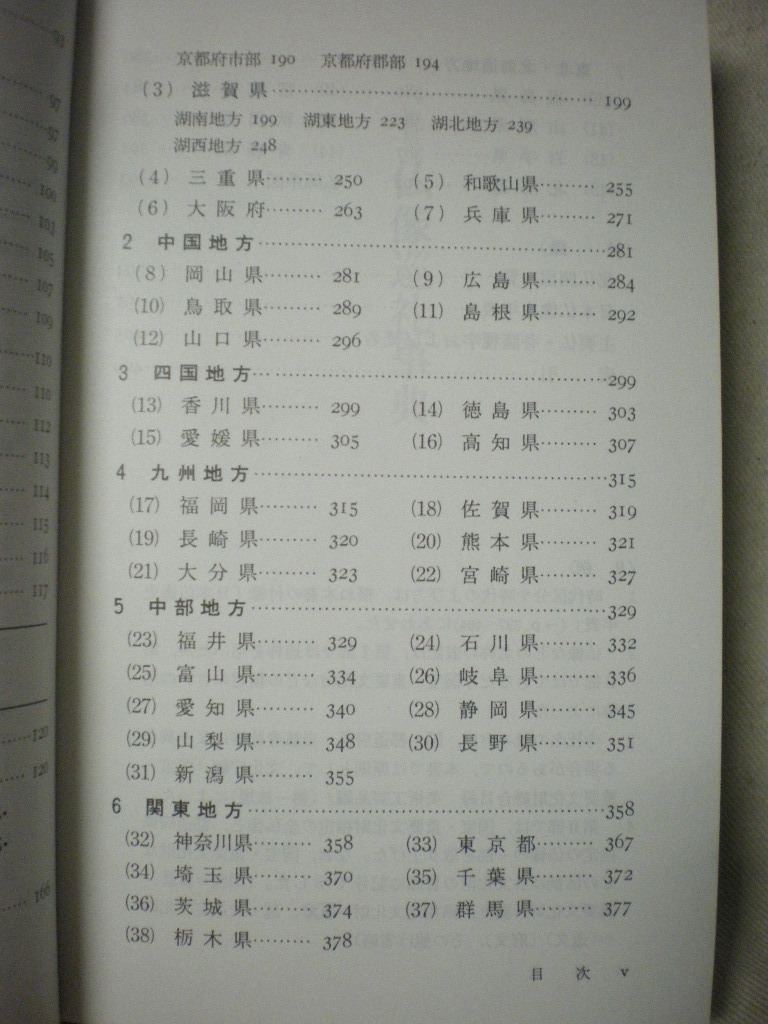 京都府市部 190　京都府郡部 194
(3) 滋賀県……………………………………199
湖南地方 199　湖東地方 223　湖北地方 239
湖西地方 248
(4) 三重県……… 250　(5) 和歌山県……… 255
(6) 大阪府……… 263　(7) 兵庫県……… 271
2 中国地方……………………………………281
(8) 岡山県……… 281　(9) 広島県……… 284
(10) 鳥取県……… 289　(11) 島根県……… 292
(12) 山口県……… 296
3 四国地方……………………………………299
(13) 香川県……… 299　(14) 徳島県……… 303
(15) 愛媛県……… 305　(16) 高知県……… 307
4 九州地方……………………………………315
(17) 福岡県……… 315　(18) 佐賀県……… 319
(19) 長崎県……… 320　(20) 熊本県……… 321
(21) 大分県……… 323　(22) 宮崎県……… 327
5 中部地方……………………………………329
(23) 福井県……… 329　(24) 石川県……… 332
(25) 富山県……… 334　(26) 岐阜県……… 336
(27) 愛知県……… 340　(28) 静岡県……… 345
(29) 山梨県……… 348　(30) 長野県……… 351
(31) 新潟県……… 355
6 関東地方……………………………………358
(32) 神奈川県……… 358　(33) 東京都……… 367
(34) 埼玉県……… 370　(35) 千葉県……… 372
(36) 茨城県……… 374　(37) 群馬県……… 377
(38) 栃木県……… 378
目次 v